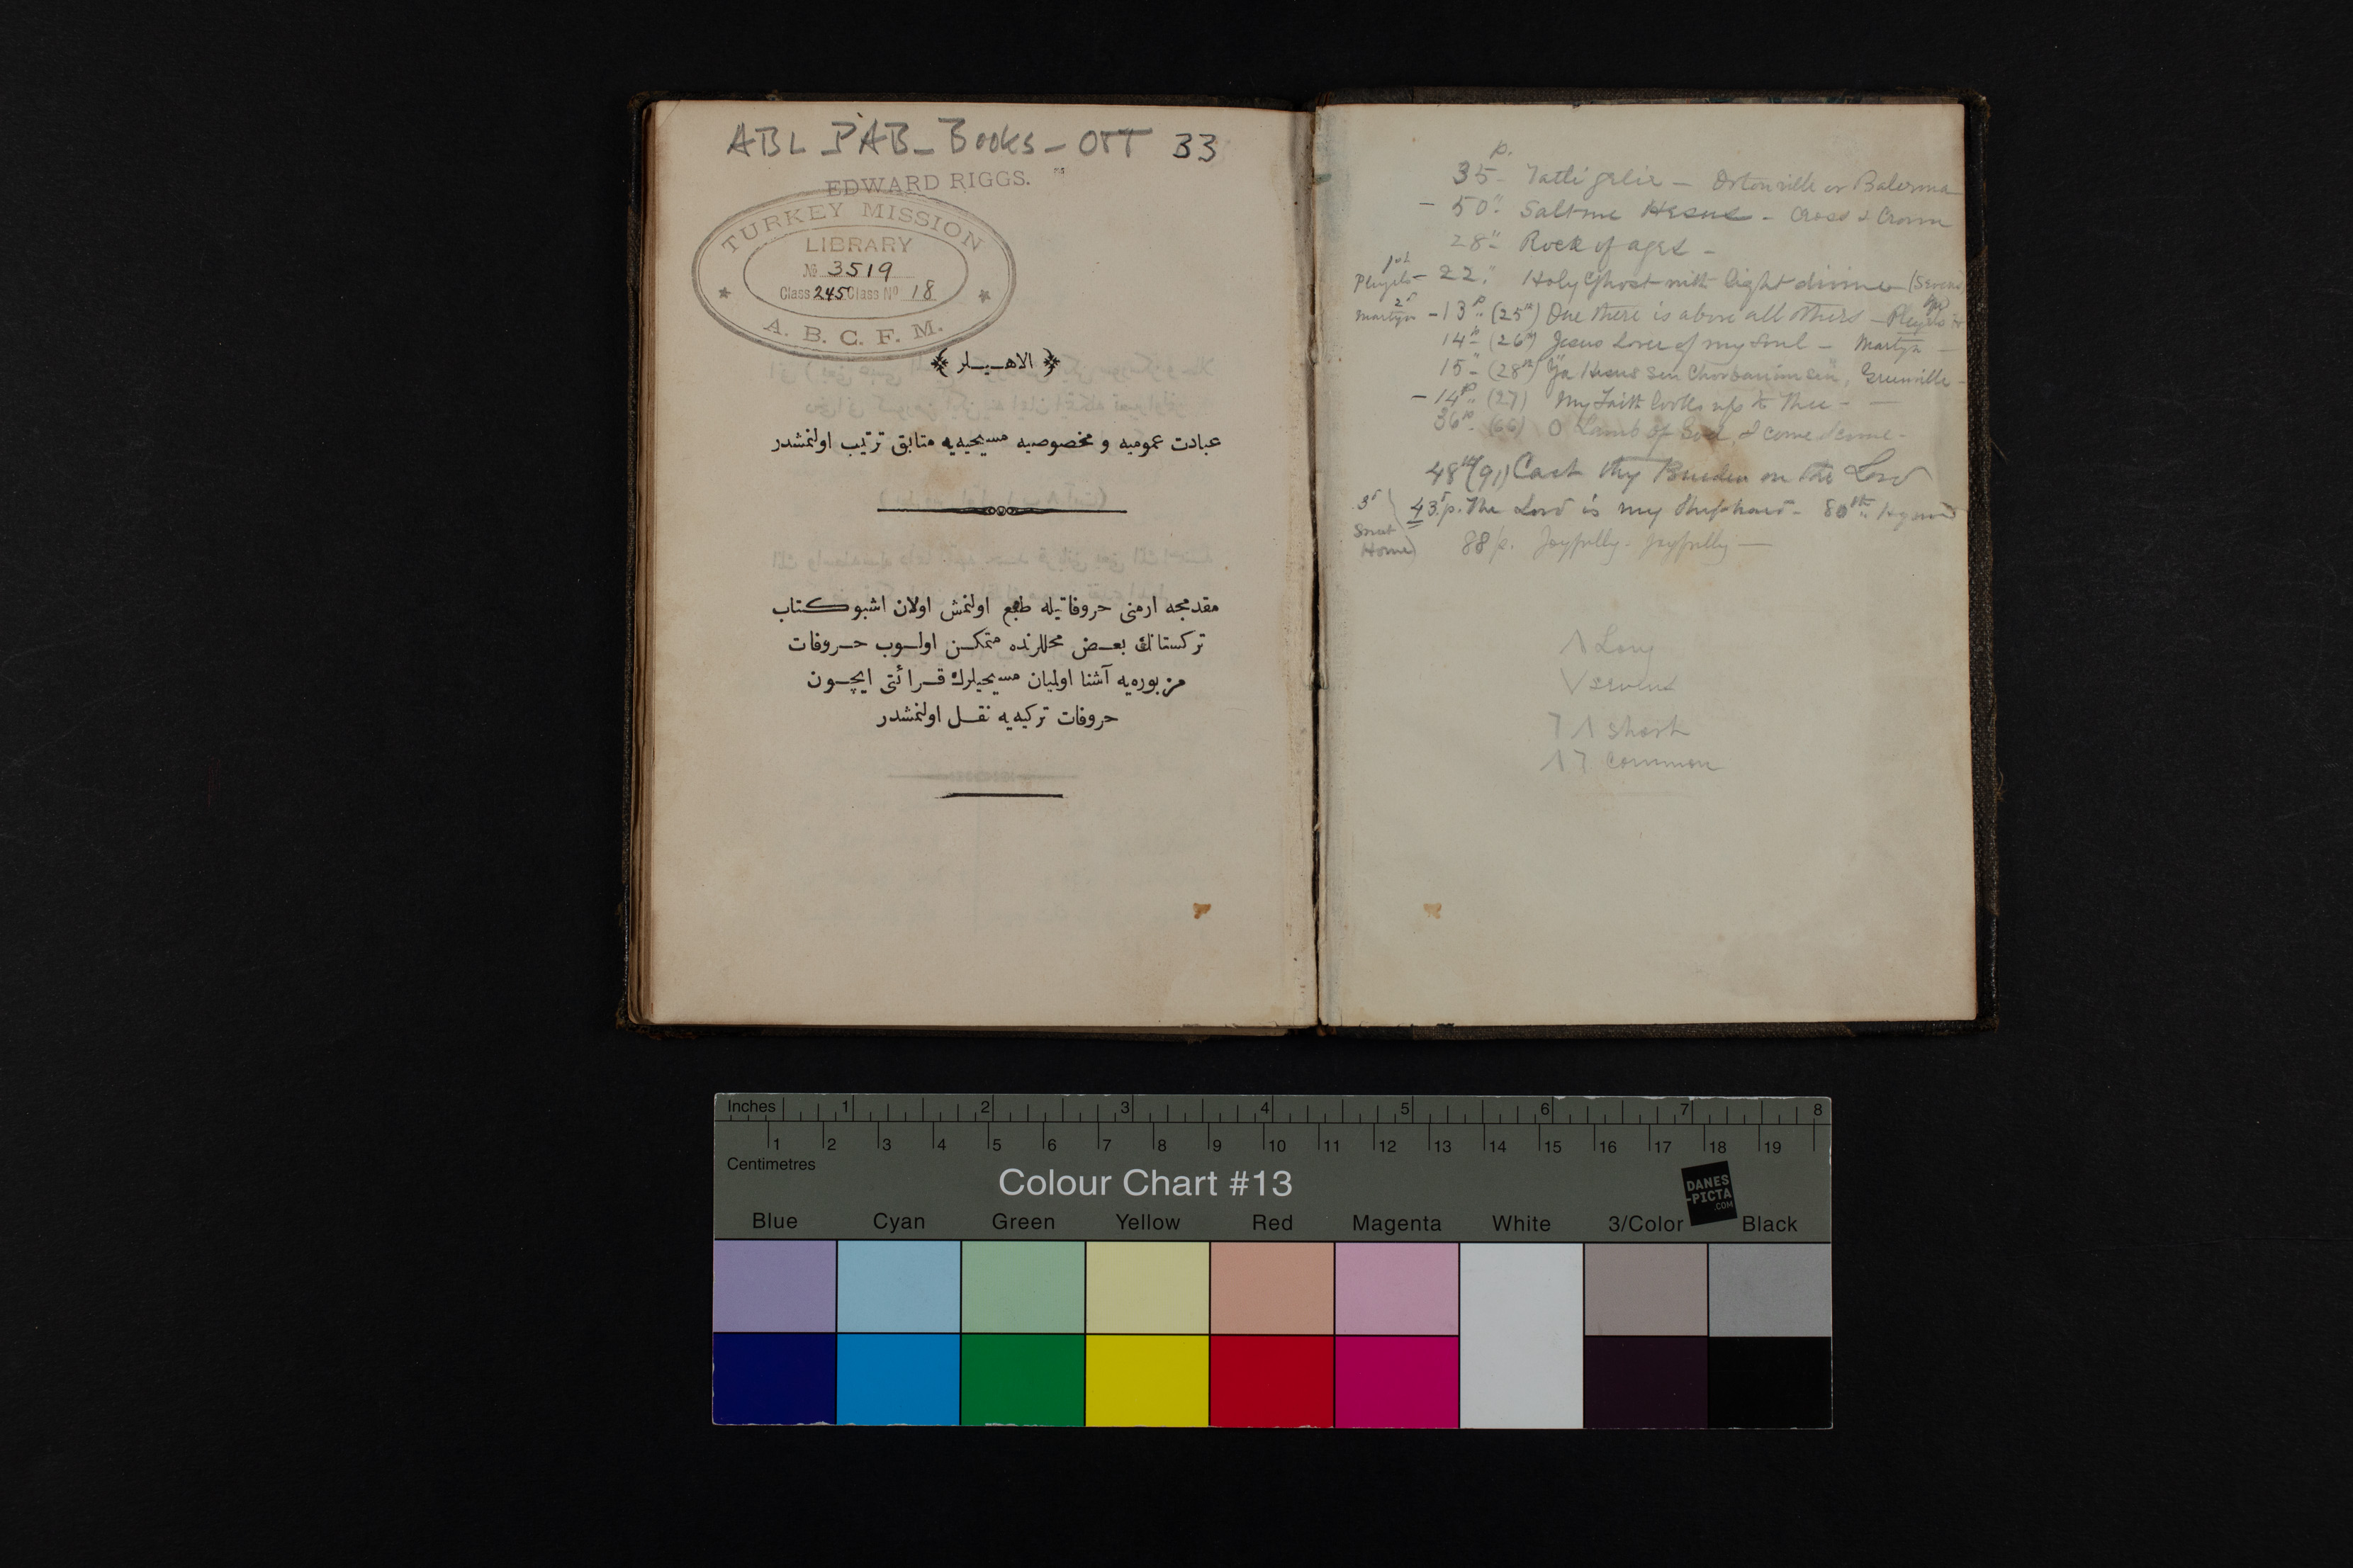 ABL PAB_Books - OTT 33
EDWARD RIGGS.
TURKEY MISSION
LIBRARY
№ 3519
Class 245 Class Nº 18
A. B. C. F. M.
﴿ الاهيلر ﴾
عبادت عموميه و مخصوصيه مسيحيه‌يه متابق ترتيب اولنمشدر
مقدمجه ارمنى حروفاتيله طبع اولنمش اولان اشبو كتاب
تركستانك بعض محللرنده متمكن اولوب حروفات
مزبوره‌يه آشنا اولميان مسيحيلرك قرائتى ايچون
حروفات تركيه‌يه نقل اولنمشدر
p.
35 - Tatli gelir - Ortonville or Balerma
- 50 " Salt me Hesus - Cross & Crown
28 " Rock of ages -
1st
Pleyels - 22 " Holy Ghost with light divine - (Sevens)
2d
Martyn - 13 p (25th) One there is above all others - Pleyels
14 " (26th) Jesus Lover of my Soul - Martyn -
15 " (28th) "Ya Hesus sen Chobanim sen", Greenville -
- 14 p (27) My Faith looks up to Thee -
36 p (66) O Lamb of God, I come I come -
48th (91) Cast thy Burden on the Lord
3d 43 p. The Lord is my Shepherd - 80th Hymn
Sweet
Home 88 p. Joyfully. Joyfully -
Long
sevens
short
common
Inches 1 2 3 4 5 6 7 8
1 2 3 4 5 6 7 8 9 10 11 12 13 14 15 16 17 18 19
Centimetres
Colour Chart #13
DANES
-PICTA
.COM
Blue Cyan Green Yellow Red Magenta White 3/Color Black